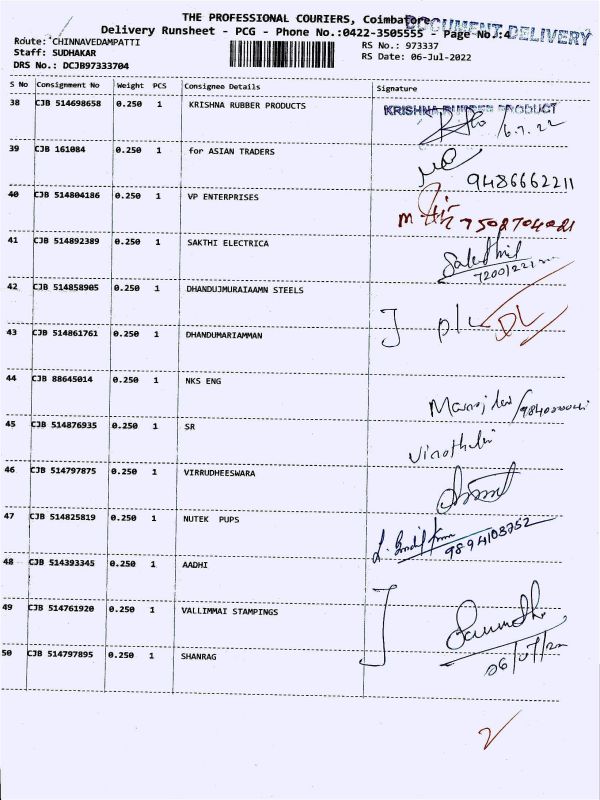 THE PROFESSIONAL COURIERS, Coimbatore
DOCUMENT DELIVERY
Delivery Runsheet - PCG - Phone No.:0422-3505555 - Page No.:4
Route: CHINNAVEDAMPATTI
RS No.: 973337
Staff: SUDHAKAR
RS Date: 06-Jul-2022
DRS No.: DCJB97333704
S No Consignment No Weight PCS Consignee Details Signature
38 CJB 514698658 0.250 1 KRISHNA RUBBER PRODUCTS KRISHNA RUBBER PRODUCT
6.7.22
39 CJB 161084 0.250 1 for ASIAN TRADERS
9486662211
40 CJB 514804186 0.250 1 VP ENTERPRISES
7502704021
41 CJB 514892389 0.250 1 SAKTHI ELECTRICA
42 CJB 514858905 0.250 1 DHANDUJMURAIAAMN STEELS
43 CJB 514861761 0.250 1 DHANDUMARIAMMAN
44 CJB 88645014 0.250 1 NKS ENG
45 CJB 514876935 0.250 1 SR
46 CJB 514797875 0.250 1 VIRRUDHEESWARA
47 CJB 514825819 0.250 1 NUTEK PUPS
9894108752
48 CJB 514393345 0.250 1 AADHI
49 CJB 514761920 0.250 1 VALLIMMAI STAMPINGS
50 CJB 514797895 0.250 1 SHANRAG
06/07/22